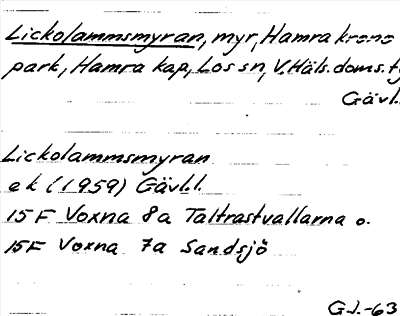 Lickolammsmyran, myr, Hamra krono
park, Hamra kap, Los sn, V. Häls. doms. tg
Gävl.
Lickolammsmyran
ek (1959) Gävl.l.
15 F Voxna 8a Taltrastvallarna o.
15F Voxna 7a Sandsjö
G.J.-63